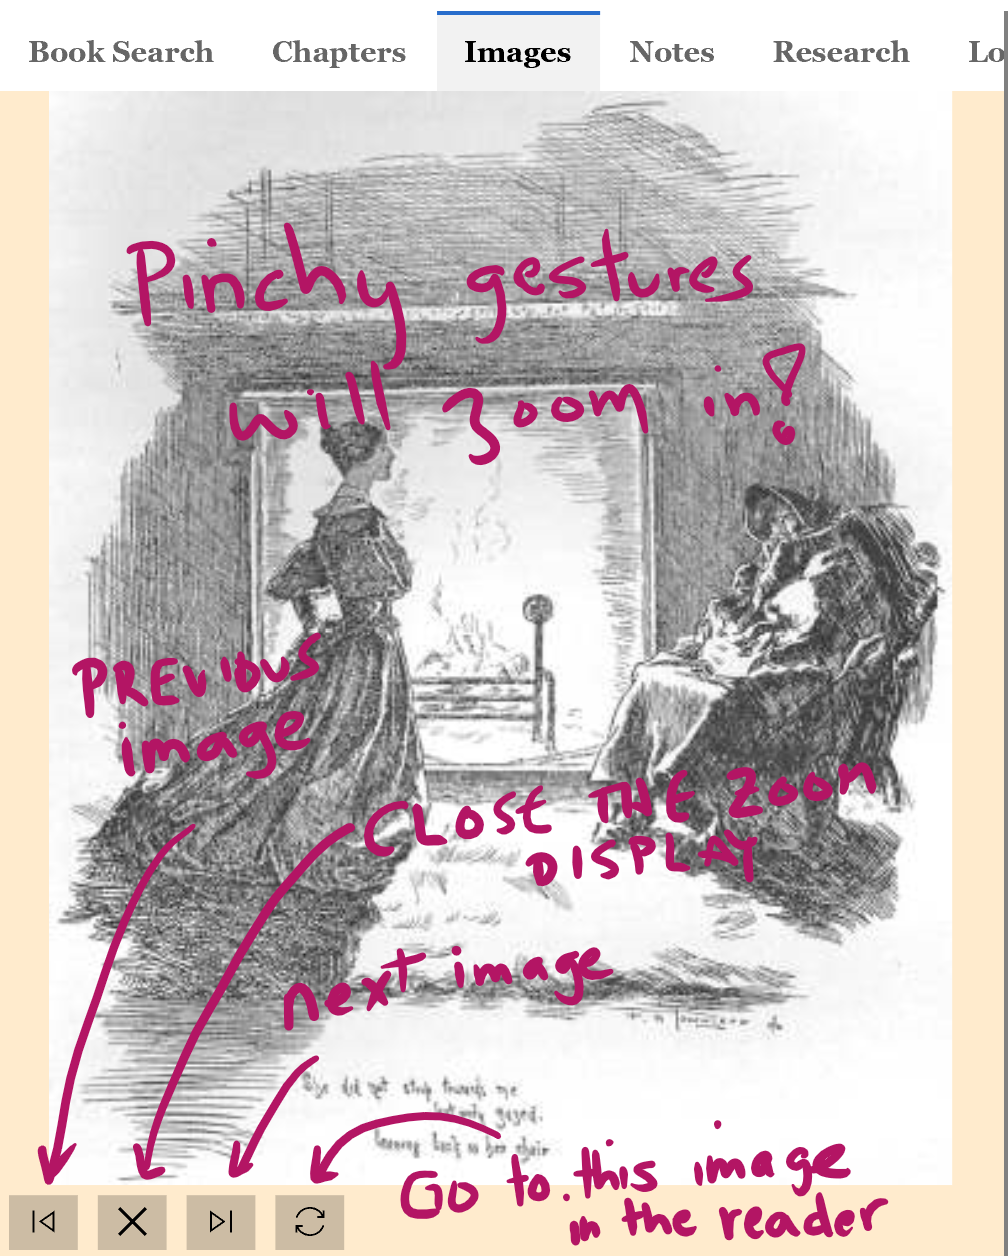 Book Search Chapters Images Notes Research Lo
Pinchy gestures
will zoom in!
PREVIOUS
image
CLOSE THE ZOOM
DISPLAY
next image
She did not stoop towards me
but only gazed,
leaning back in her chair
Go to this image
in the reader